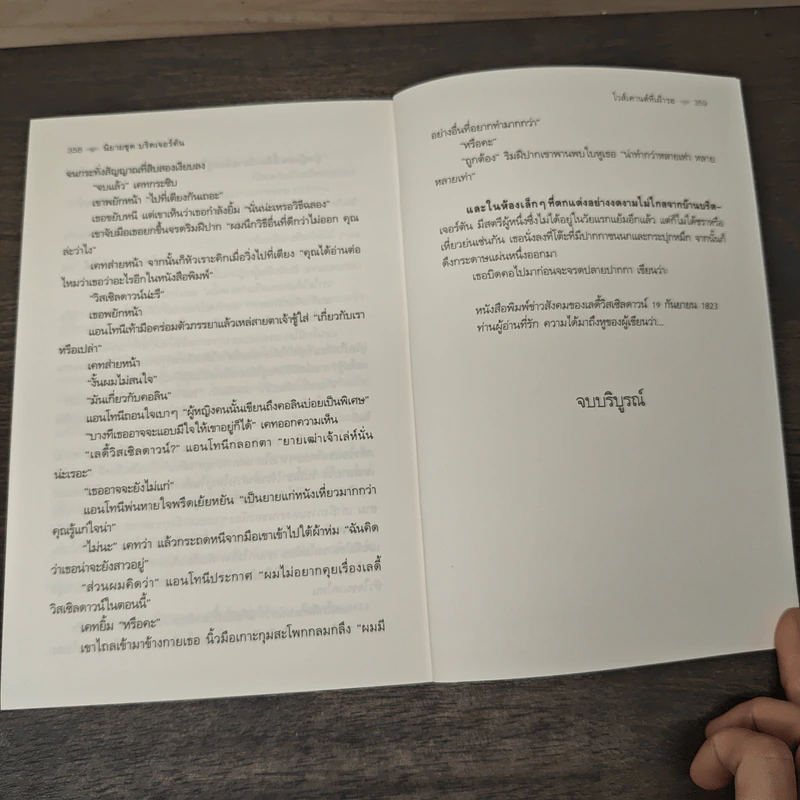 358 นิยายชุด บริดเจอร์ตัน
จนกระทั่งสัญญาณที่สิบสองเงียบลง
"จบแล้ว" เคทกระซิบ
เขาพยักหน้า "ไปที่เตียงกันเถอะ"
เธอขยับหนี แต่เขาเห็นว่าเธอกำลังยิ้ม "นั่นน่ะเหรอวิธีฉลอง"
เขาจับมือเธอยกขึ้นจรดริมฝีปาก "ผมนึกวิธีอื่นที่ดีกว่าไม่ออก คุณ
ล่ะว่าไง"
เคทส่ายหน้า จากนั้นก็หัวเราะคิกเมื่อวิ่งไปที่เตียง "คุณได้อ่านต่อ
ไหมว่าเธอว่าอะไรอีกในหนังสือพิมพ์"
"วิสเซิลดาวน์น่ะรึ"
เธอพยักหน้า
แอนโทนีเท้ามือคร่อมตัวภรรยาแล้วเหล่สายตาเจ้าชู้ใส่ "เกี่ยวกับเรา
หรือเปล่า"
เคทส่ายหน้า
"งั้นผมไม่สนใจ"
"มันเกี่ยวกับคอลิน"
แอนโทนีถอนใจเบาๆ "ผู้หญิงคนนั้นเขียนถึงคอลินบ่อยเป็นพิเศษ"
"บางทีเธออาจจะแอบมีใจให้เขาอยู่ก็ได้" เคทออกความเห็น
"เลดี้วิสเซิลดาวน์?" แอนโทนีกลอกตา "ยายเฒ่าเจ้าเล่ห์นั่น
น่ะเรอะ"
"เธออาจจะยังไม่แก่"
แอนโทนีพ่นหายใจพรืดเย้ยหยัน "เป็นยายแก่หนังเหี่ยวมากกว่า
คุณรู้แก่ใจน่า"
"ไม่นะ" เคทว่า แล้วกระถดหนีจากมือเขาเข้าไปใต้ผ้าห่ม "ฉันคิด
ว่าเธอน่าจะยังสาวอยู่"
"ส่วนผมคิดว่า" แอนโทนีประกาศ "ผมไม่อยากคุยเรื่องเลดี้
วิสเซิลดาวน์ในตอนนี้"
เคทยิ้ม "หรือคะ"
เขาไถลเข้ามาข้างกายเธอ นิ้วมือเกาะกุมสะโพกกลมกลึง "ผมมี
ไวส์เคานต์ที่เฝ้ารอ 359
อย่างอื่นที่อยากทำมากกว่า"
"หรือคะ"
"ถูกต้อง" ริมฝีปากเขาพานพบใบหูเธอ "น่าทำกว่าหลายเท่า หลาย
หลายเท่า"
และในห้องเล็กๆ ที่ตกแต่งอย่างงดงามไม่ไกลจากบ้านบริด-
เจอร์ตัน มีสตรีผู้หนึ่งซึ่งไม่ได้อยู่ในวัยแรกแย้มอีกแล้ว แต่ก็ไม่ได้ชราหรือ
เหี่ยวย่นเช่นกัน เธอนั่งลงที่โต๊ะที่มีปากกาขนนกและกระปุกหมึก จากนั้นก็
ดึงกระดาษแผ่นหนึ่งออกมา
เธอบิดคอไปมาก่อนจะจรดปลายปากกา เขียนว่า
หนังสือพิมพ์ข่าวสังคมของเลดี้วิสเซิลดาวน์ 19 กันยายน 1823
ท่านผู้อ่านที่รัก ความได้มาถึงหูของผู้เขียนว่า...
จบบริบูรณ์